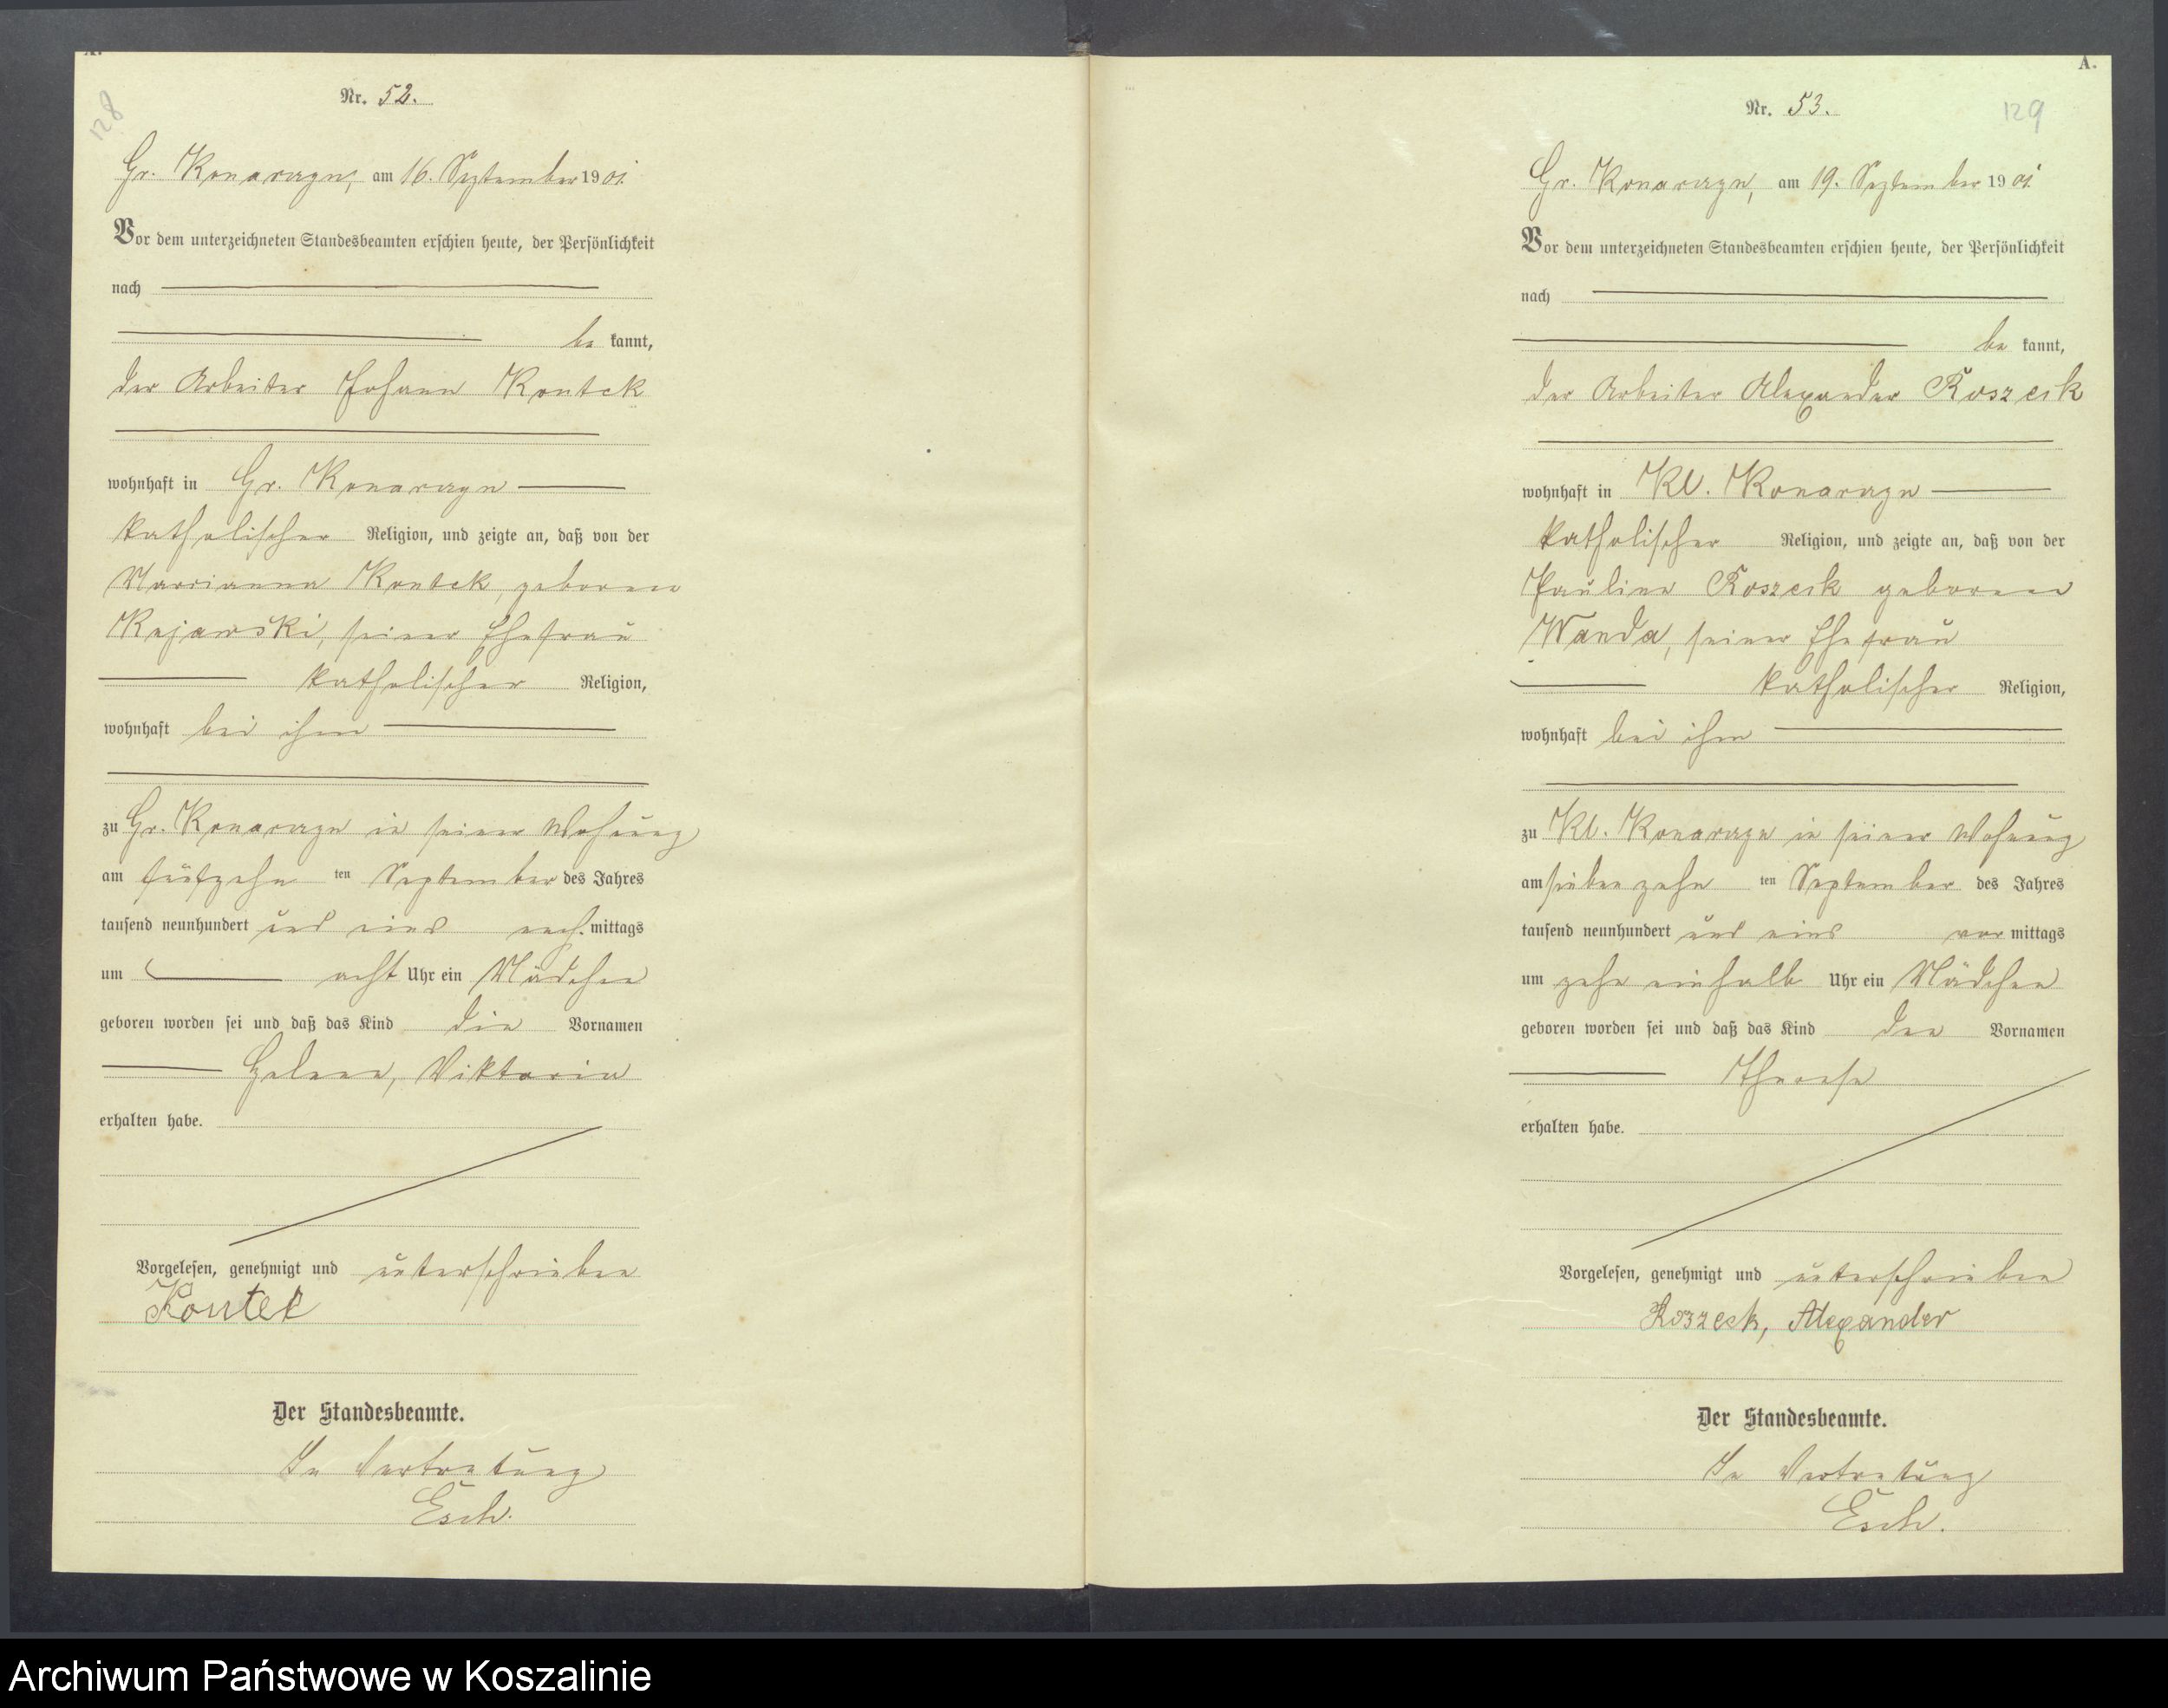 128
Nr. 52.
Gr. Konarczyn, am 16. September 1901.
Vor dem unterzeichneten Standesbeamten erschien heute, der Persönlichkeit
nach
be kannt,
der Arbeiter Johann Kontek
wohnhaft in Gr. Konarczyn
katholischer Religion, und zeigte an, daß von der
Marianna Kontek, geborene
Kujawski, seiner Ehefrau
katholischer Religion,
wohnhaft bei ihm
zu Gr. Konarczyn in seiner Wohnung
am fünfzehn ten September des Jahres
tausend neunhundert und eins nach. mittags
um acht Uhr ein Mädchen
geboren worden sei und daß das Kind die Vornamen
Helene, Viktoria
erhalten habe.
Vorgelesen, genehmigt und unterschrieben
Kontek
Der Standesbeamte.
In Vertretung
Esch.
A.
Nr. 53.
129
Gr. Konarczyn, am 19. September 1901.
Vor dem unterzeichneten Standesbeamten erschien heute, der Persönlichkeit
nach
be kannt,
der Arbeiter Alexander Roszcik
wohnhaft in Kl. Konarczyn
katholischer Religion, und zeigte an, daß von der
Pauline Roszcik geborene
Wanda, seiner Ehefrau
katholischer Religion,
wohnhaft bei ihm
zu Kl. Konarczyn in seiner Wohnung
am siebenzehn ten September des Jahres
tausend neunhundert und eins vor mittags
um zehn einhalb Uhr ein Mädchen
geboren worden sei und daß das Kind den Vornamen
Therese
erhalten habe.
Vorgelesen, genehmigt und unterschrieben
Roszcik, Alexander
Der Standesbeamte.
In Vertretung
Esch.
Archiwum Państwowe w Koszalinie